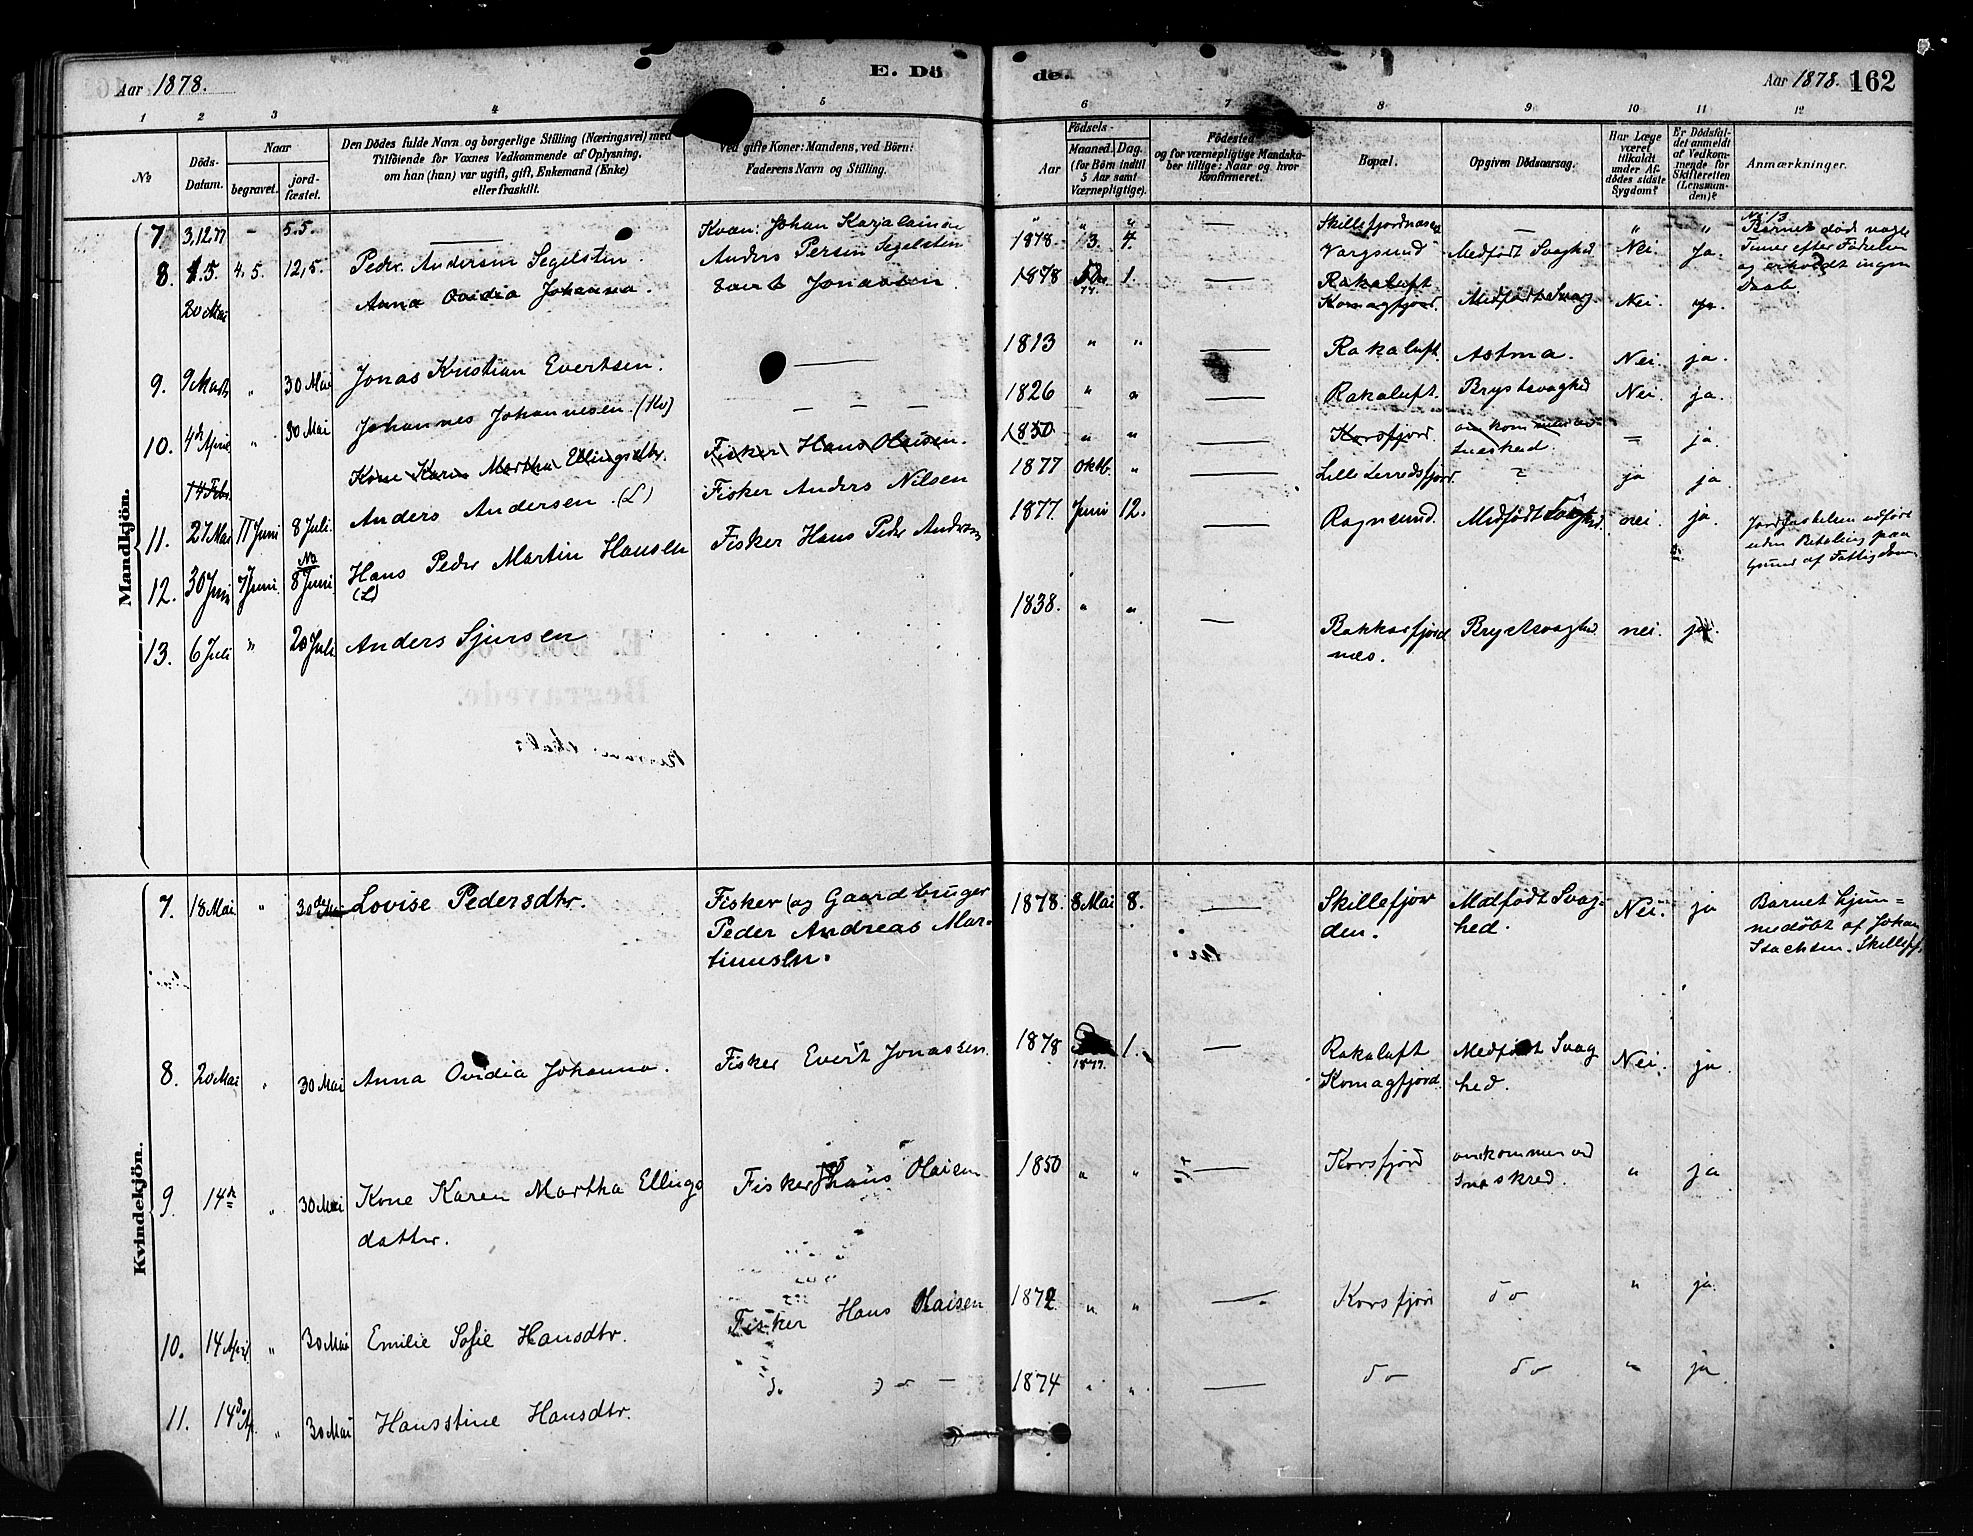 Aar 1878. E. Dö de. Aar 1878. 162
1 2 3 4 5 6 7 8 9 10 11 12
No
Döds-Datum.
Naar
begravet.
jordfæstet.
Den Dödes fulde Navn og borgerlige Stilling (Næringsvei) med
Tilföiende for Voxnes Vedkommende af Oplysning,
om han (hun) var ugift, gift, Enkemand (Enke)
eller fraskilt.
Ved gifte Koner: Mandens, ved Börn:
Faderens Navn og Stilling.
Födsels-
Aar
Maaned. Dag.
(for Börn indtil
5 Aar samt
Værnepligtige).
Födested
og for værnepligtige Mandskaber
tillige: Naar og hvor
konfirmeret.
Bopæl.
Opgiven Dödsaarsag.
Har Læge
været
tilkaldt
under Afdödes
sidste
Sygdom?
Er Dödsfaldet
anmeldt
af Vedkommende
for
Skifteretten
(Lensmanden)?
Anmærkninger.
Mandkjön.
7 3,12.77 - 5.5. — Kvæn: Johan Karjalainen " " " — — " "
8. 1.5. 4.5. 12,5. Peder Andersen Segelsten Anders Persen Segelsten 1878 13. 4. — Vargsund Medfødt Svaghed Nei. Ja.
No 13
Barnet død nogle
Timer efter Fødselen
og erholdt ingen
Daab
20 Mai Anna Ovidia Johanna. Evert Jonassen. 1878 1. — Rakaluft
Komagfjord. Medfødt Svag. Nei. ja.
9. 9 Marts " 30 Mai Jonas Kristian Evertsen. — 1813 " " — Rakaluft. Astma. Nei. ja.
10. 4de April " 30 Mai Johannes Johannesen (Kv) — — — 1826 " " — Rakaluft. Brystsvaghed Nei. ja.
14 Febr. Kone Karen Martha Ellingsdtr. Fisker Hans Olaisen. 1850 " " — Korsfjord. omkom ved
Sneskred. = ja.
11. 27 Mai 11 Juni 8 Juli. Anders Andersen. (L) Fisker Anders Nilsen 1877 Oktb. " — Lille Lerredsfjord ja ja.
12. 30 Juni 7 Juni 8 Juni Hans Peder Martin Hansen
(L) Fisker Hans Peder Andersen 1877. Juni 12. — Rognsund. Medfødt Svaghed. nei. ja.
Jordfæstelsen udført
uden Betaling paa
Grund af Fattigdom
13. 6 Juli " 28 Juli Anders Sjursen 1838. " " — Bakkarfjord
næs. Brystsvaghed. nei. ja.
Kvindekjön.
7. 18 Mai " 30de Mai Lovise Pedersdtr. Fisker (og Gaardbruger
Peder Andreas Mar-
tinussen. 1878. 8 Mai 8. — Skillefjor
den. Medfødt Svag-
hed. Nei. ja
Barnet hjem=
medöbt af Johan
Isachsen. Skillefj.
8. 20 Mai " 30 Mai Anna Ovidia Johanna. Fisker Evert Jonassen. 1878 1877. 1. — Rakaluft
Komagfjord. Medfødt Svag
hed. Nei. ja.
9. 14de " 30 Mai Kone Karen Martha Ellings
datter. Fisker Hans Olaisen 1850 " " — Korsfjord omkommen ved
Sneskred. " ja
10. 14 April " 30 Mai Emilie Sofie Hansdtr. Fisker Hans Olaisen 1872 " " — Korsfjord do " ja.
11. 14de Ap. " 30 Mai Hansstine Hansdtr. do — 1874 " " — do do " ja